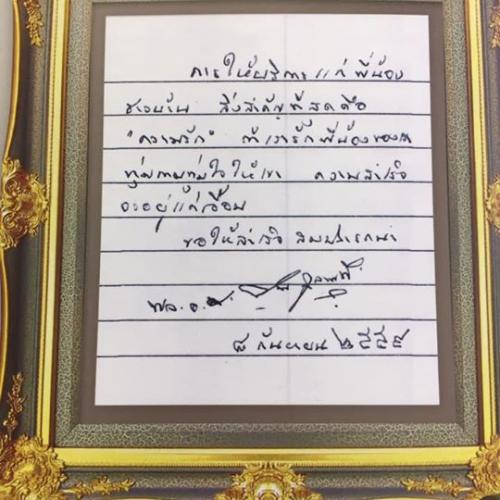 การให้บริการแก่พี่น้อง
ชาวบ้าน สิ่งสำคัญที่สุดคือ
"ความรัก" ถ้าเรารักพี่น้องของเรา
ทุ่มกายทุ่มใจให้เขา ความสำเร็จ
จะอยู่แค่เอื้อม
ขอให้สำเร็จ สมปรารถนา
พล.อ.
๘ กันยายน ๒๕๕๙